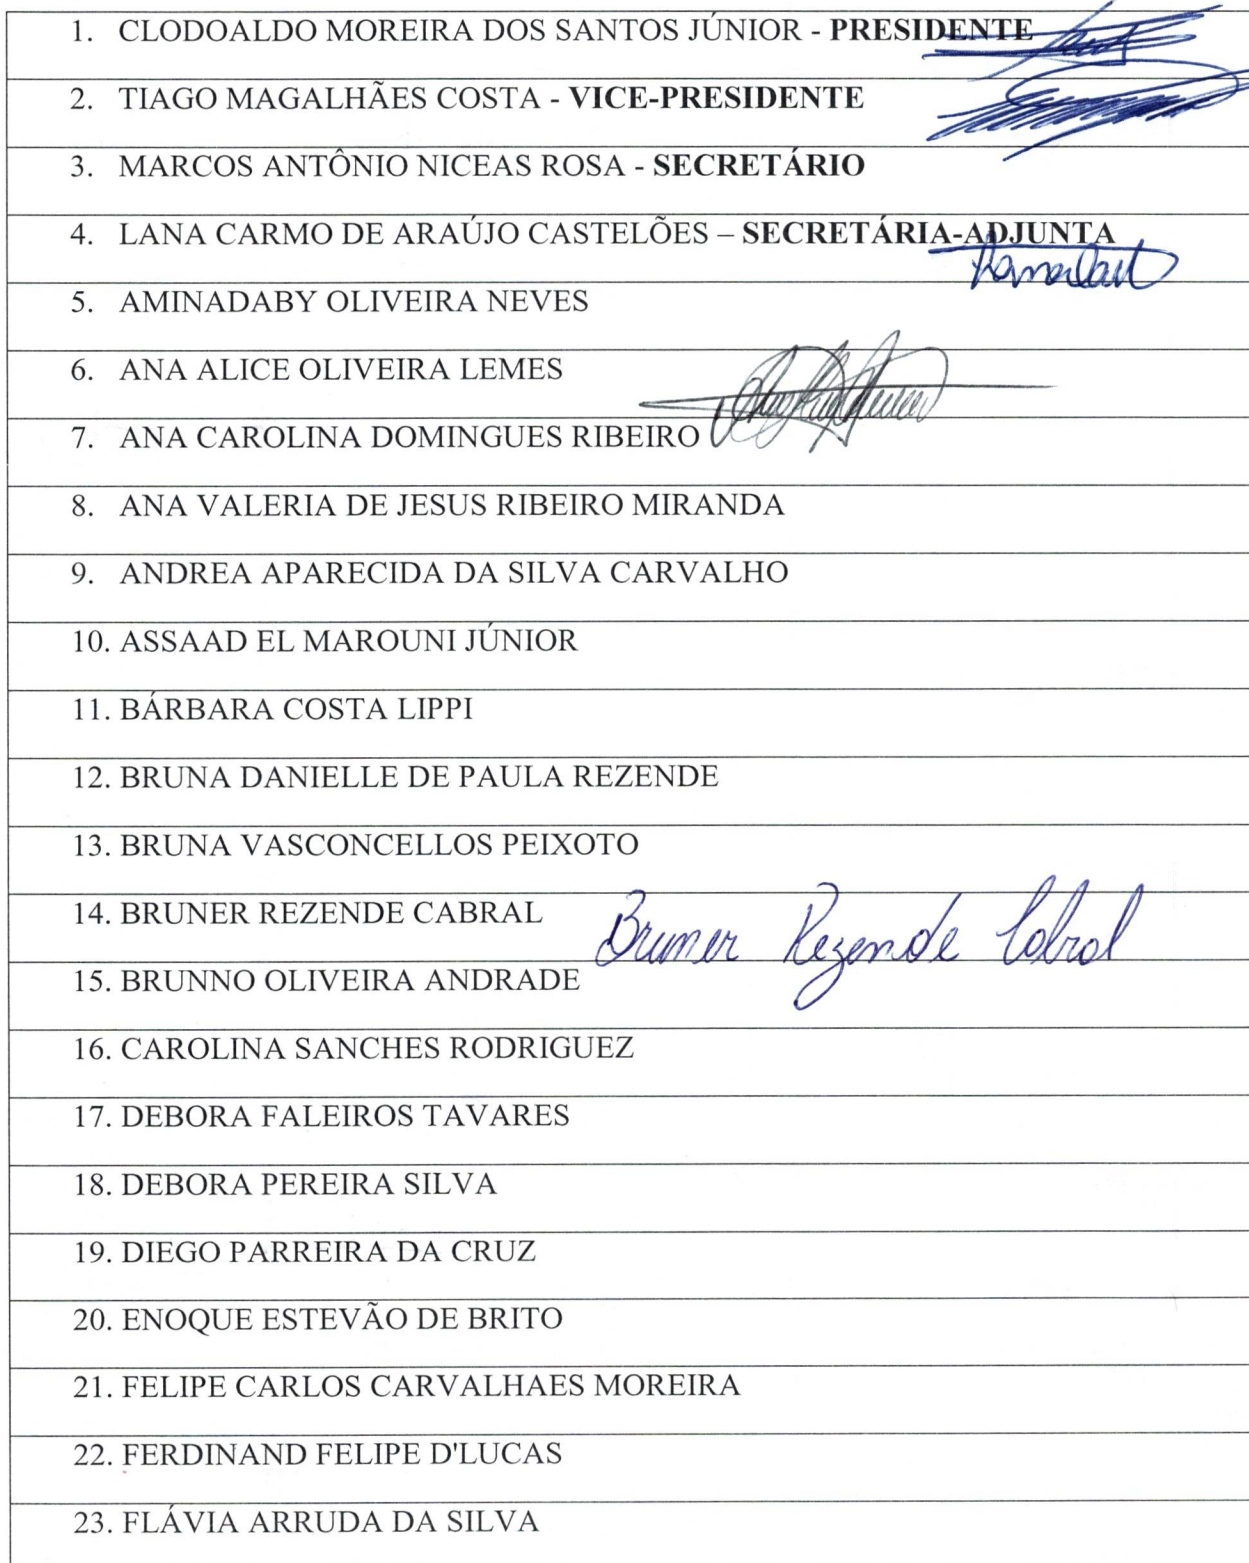 1. CLODOALDO MOREIRA DOS SANTOS JÚNIOR - PRESIDENTE
2. TIAGO MAGALHÃES COSTA - VICE-PRESIDENTE
3. MARCOS ANTÔNIO NICEAS ROSA - SECRETÁRIO
4. LANA CARMO DE ARAÚJO CASTELÕES – SECRETÁRIA-ADJUNTA
5. AMINADABY OLIVEIRA NEVES
6. ANA ALICE OLIVEIRA LEMES
7. ANA CAROLINA DOMINGUES RIBEIRO
8. ANA VALERIA DE JESUS RIBEIRO MIRANDA
9. ANDREA APARECIDA DA SILVA CARVALHO
10. ASSAAD EL MAROUNI JÚNIOR
11. BÁRBARA COSTA LIPPI
12. BRUNA DANIELLE DE PAULA REZENDE
13. BRUNA VASCONCELLOS PEIXOTO
14. BRUNER REZENDE CABRAL Bruner Rezende Cabral
15. BRUNNO OLIVEIRA ANDRADE
16. CAROLINA SANCHES RODRIGUEZ
17. DEBORA FALEIROS TAVARES
18. DEBORA PEREIRA SILVA
19. DIEGO PARREIRA DA CRUZ
20. ENOQUE ESTEVÃO DE BRITO
21. FELIPE CARLOS CARVALHAES MOREIRA
22. FERDINAND FELIPE D'LUCAS
23. FLÁVIA ARRUDA DA SILVA